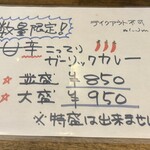 数量限定!
テイクアウト不可
旨辛こってり
ガーリックカレー
☆並盛 ¥850
☆大盛 ¥950
※特盛は出来ません